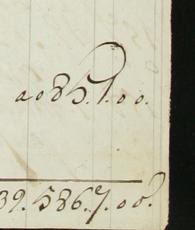 a o 857.00.
39.5867.00.